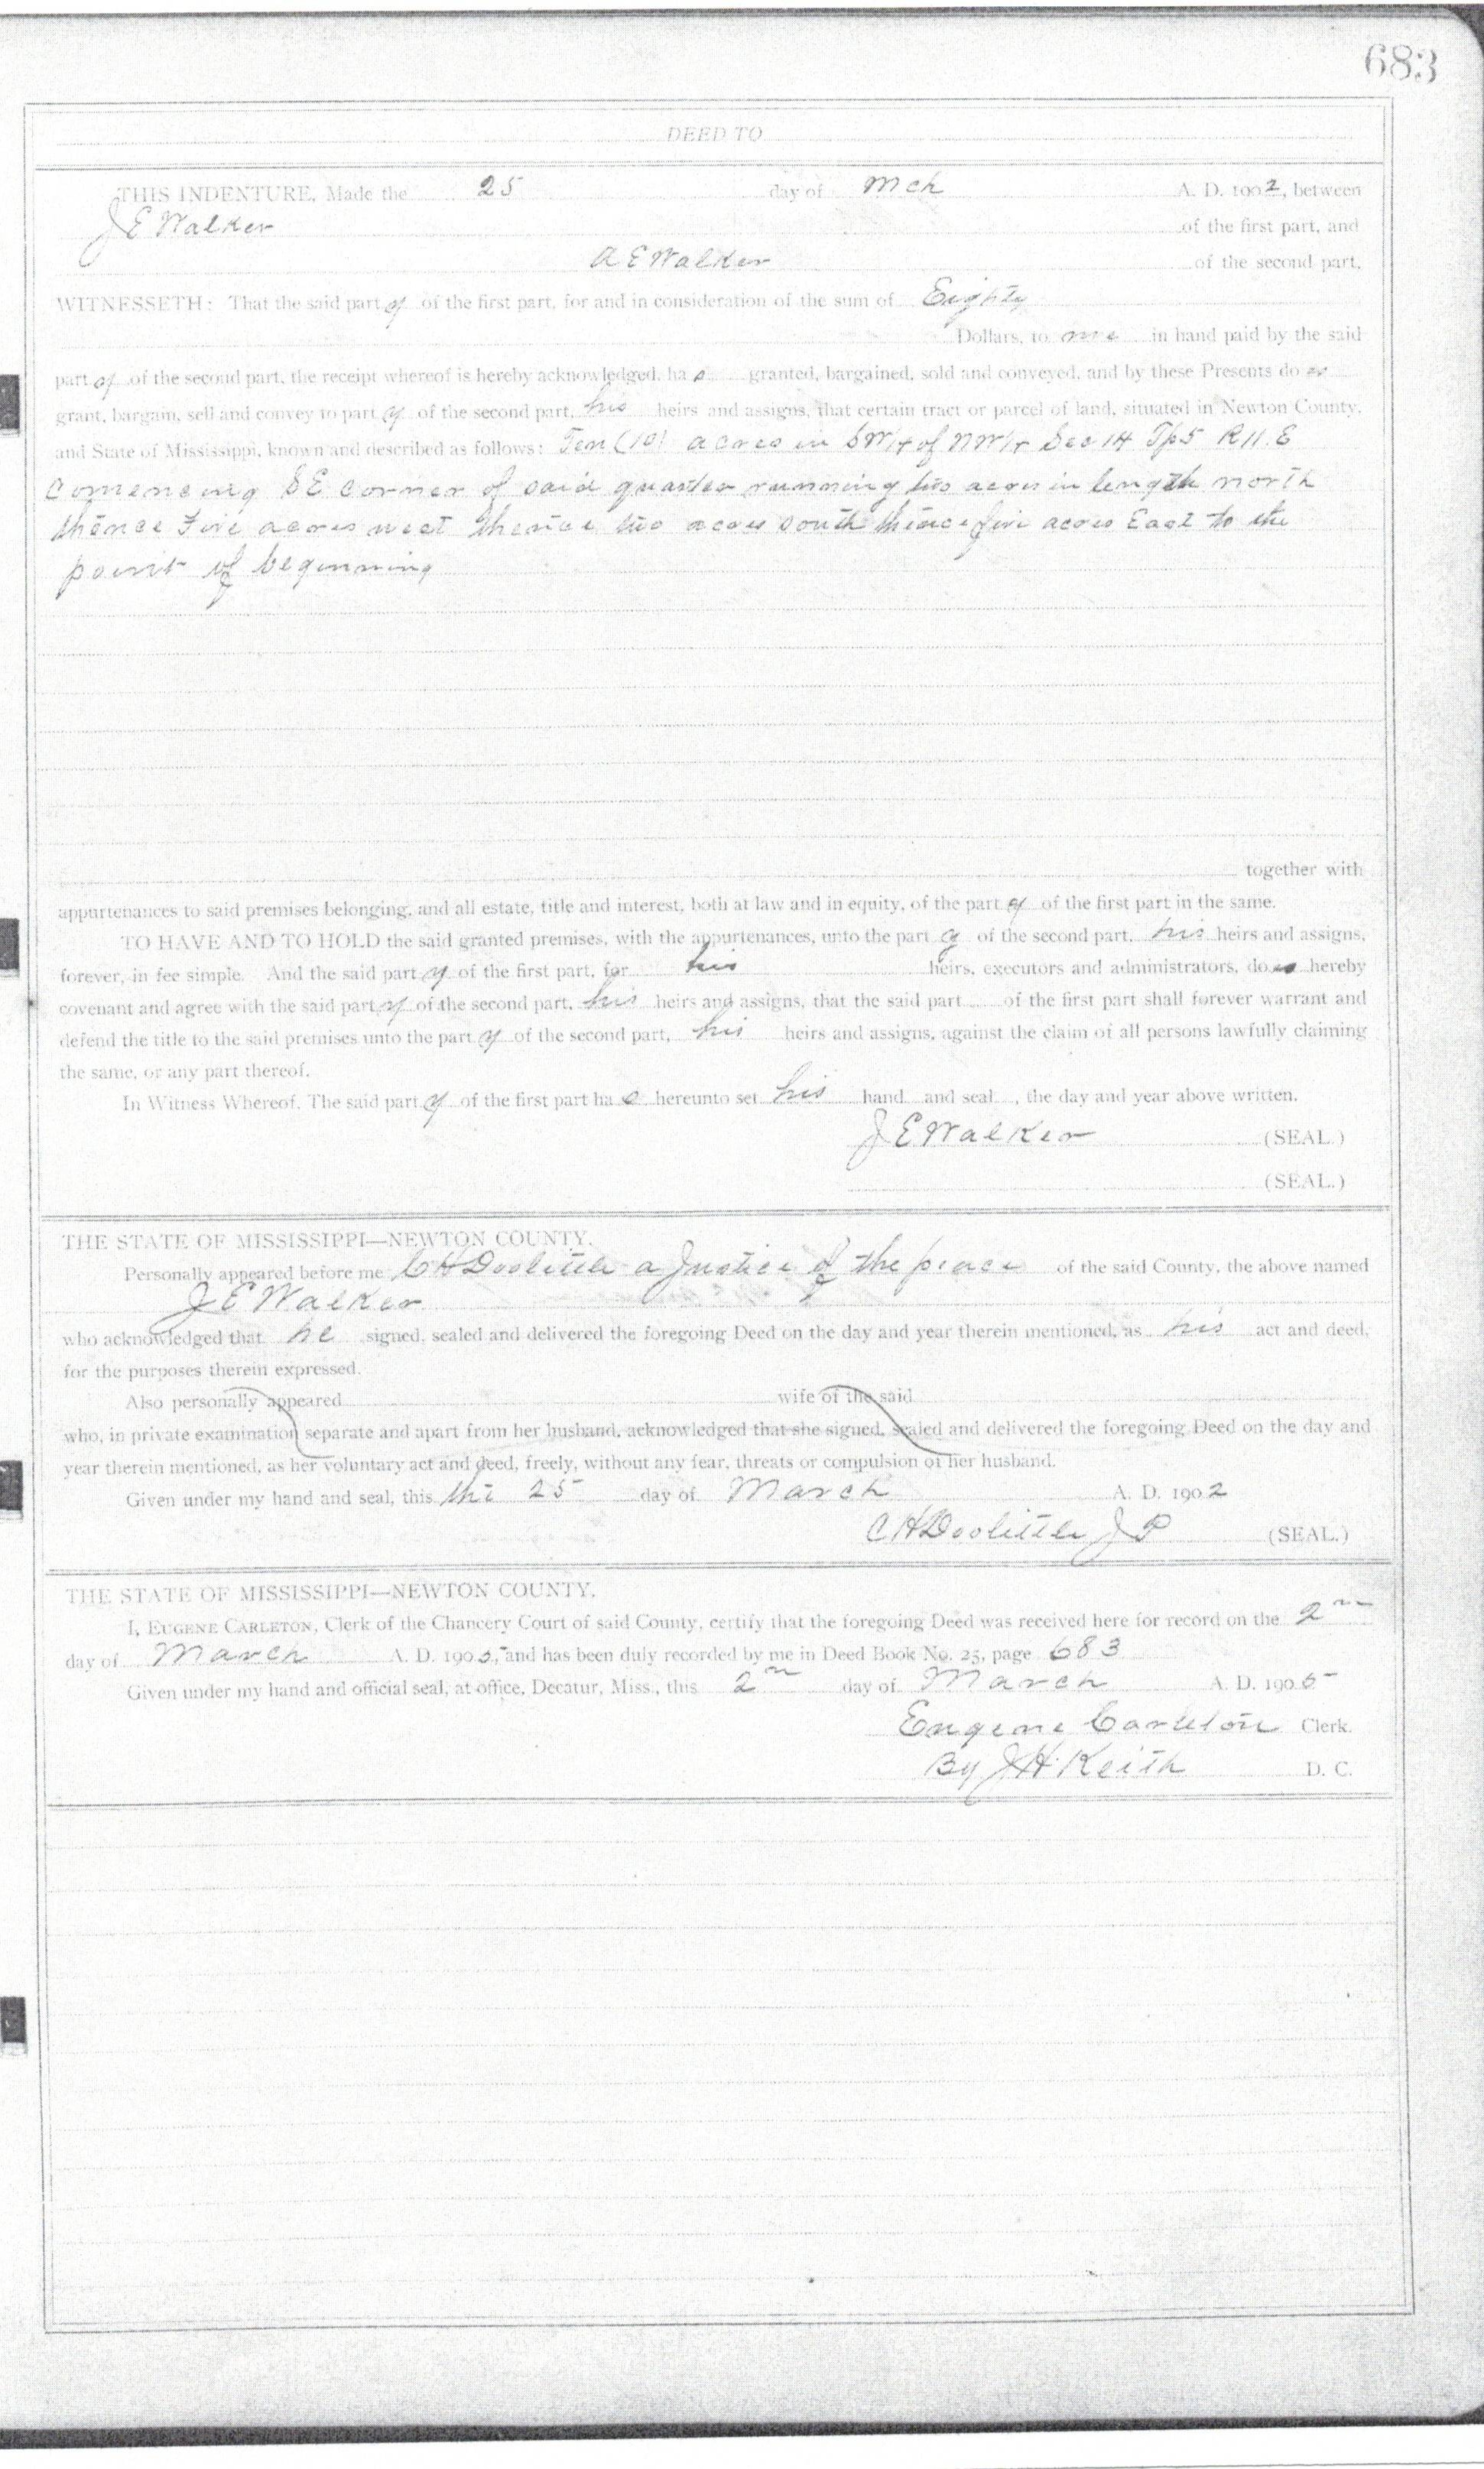 683
DEED TO
THIS INDENTURE, Made the 25 day of Mch A. D. 1902, between
J E Walker of the first part, and
A E Walker of the second part,
WITNESSETH: That the said party of the first part, for and in consideration of the sum of Eighty
Dollars, to me in hand paid by the said
party of the second part, the receipt whereof is hereby acknowledged, has granted, bargained, sold and conveyed, and by these Presents does
grant, bargain, sell and convey to party of the second part, his heirs and assigns, that certain tract or parcel of land, situated in Newton County,
and State of Mississippi, known and described as follows: Ten (10) acres in SW¼ of NW¼ Sec 14 Tp5 R11.E
Comencing SE corner of said quarter running two acres in length north
thence Five acres west thence two acres south thence five acres East to the
point of beginning
together with
appurtenances to said premises belonging, and all estate, title and interest, both at law and in equity, of the party of the first part in the same.
TO HAVE AND TO HOLD the said granted premises, with the appurtenances, unto the party of the second part, his heirs and assigns,
forever, in fee simple. And the said party of the first part, for his heirs, executors and administrators, does hereby
covenant and agree with the said party of the second part, his heirs and assigns, that the said part of the first part shall forever warrant and
defend the title to the said premises unto the party of the second part, his heirs and assigns, against the claim of all persons lawfully claiming
the same, or any part thereof.
In Witness Whereof, The said party of the first part has hereunto set his hand and seal , the day and year above written.
J E Walker (SEAL.)
(SEAL.)
THE STATE OF MISSISSIPPI—NEWTON COUNTY.
Personally appeared before me C H Doolittle a Justice of the peace of the said County, the above named
J E Walker
who acknowledged that he signed, sealed and delivered the foregoing Deed on the day and year therein mentioned, as his act and deed,
for the purposes therein expressed.
Also personally appeared wife of the said
who, in private examination separate and apart from her husband, acknowledged that she signed, sealed and delivered the foregoing Deed on the day and
year therein mentioned, as her voluntary act and deed, freely, without any fear, threats or compulsion of her husband.
Given under my hand and seal, this the 25 day of March A. D. 1902
C H Doolittle J P (SEAL.)
THE STATE OF MISSISSIPPI—NEWTON COUNTY.
I, EUGENE CARLETON, Clerk of the Chancery Court of said County, certify that the foregoing Deed was received here for record on the 2nd
day of March A. D. 1905, and has been duly recorded by me in Deed Book No. 25, page 683
Given under my hand and official seal, at office, Decatur, Miss., this 2nd day of March A. D. 1905
Eugene Carleton Clerk.
By J H Keith D. C.